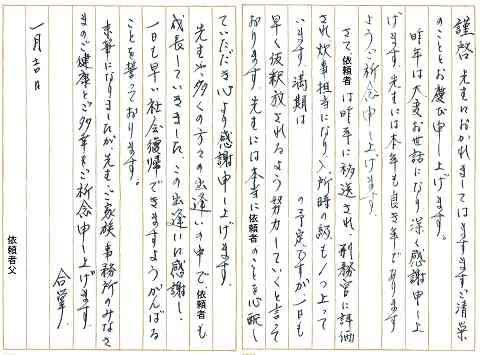 謹啓 先生におかれましてはますますご清栄
のこととお慶び申し上げます。
昨年は大変お世話になり深く感謝申し上
げます。先生には本年も良き年であります
ようご祈念申し上げます。
さて、依頼者は昨年に移送され、刑務官に評価
され炊事担当になり入所時の級も1つ上って
います。満期は の予定ですが一日も
早く仮釈放されるよう努力していくと言って
おります。先生には本当に依頼者のことを心配し
ていただき心より感謝申し上げます。
先生や、多くの方々の出逢いの中で依頼者も
成長していきました。この出逢いに感謝し、
一日も早い社会復帰できますようがんばる
ことを誓っております。
末筆になりましたが、先生、ご家族、事務所のみなさ
まのご健康とご多幸をご祈念申し上げます。
合掌
一月吉日
依頼者父